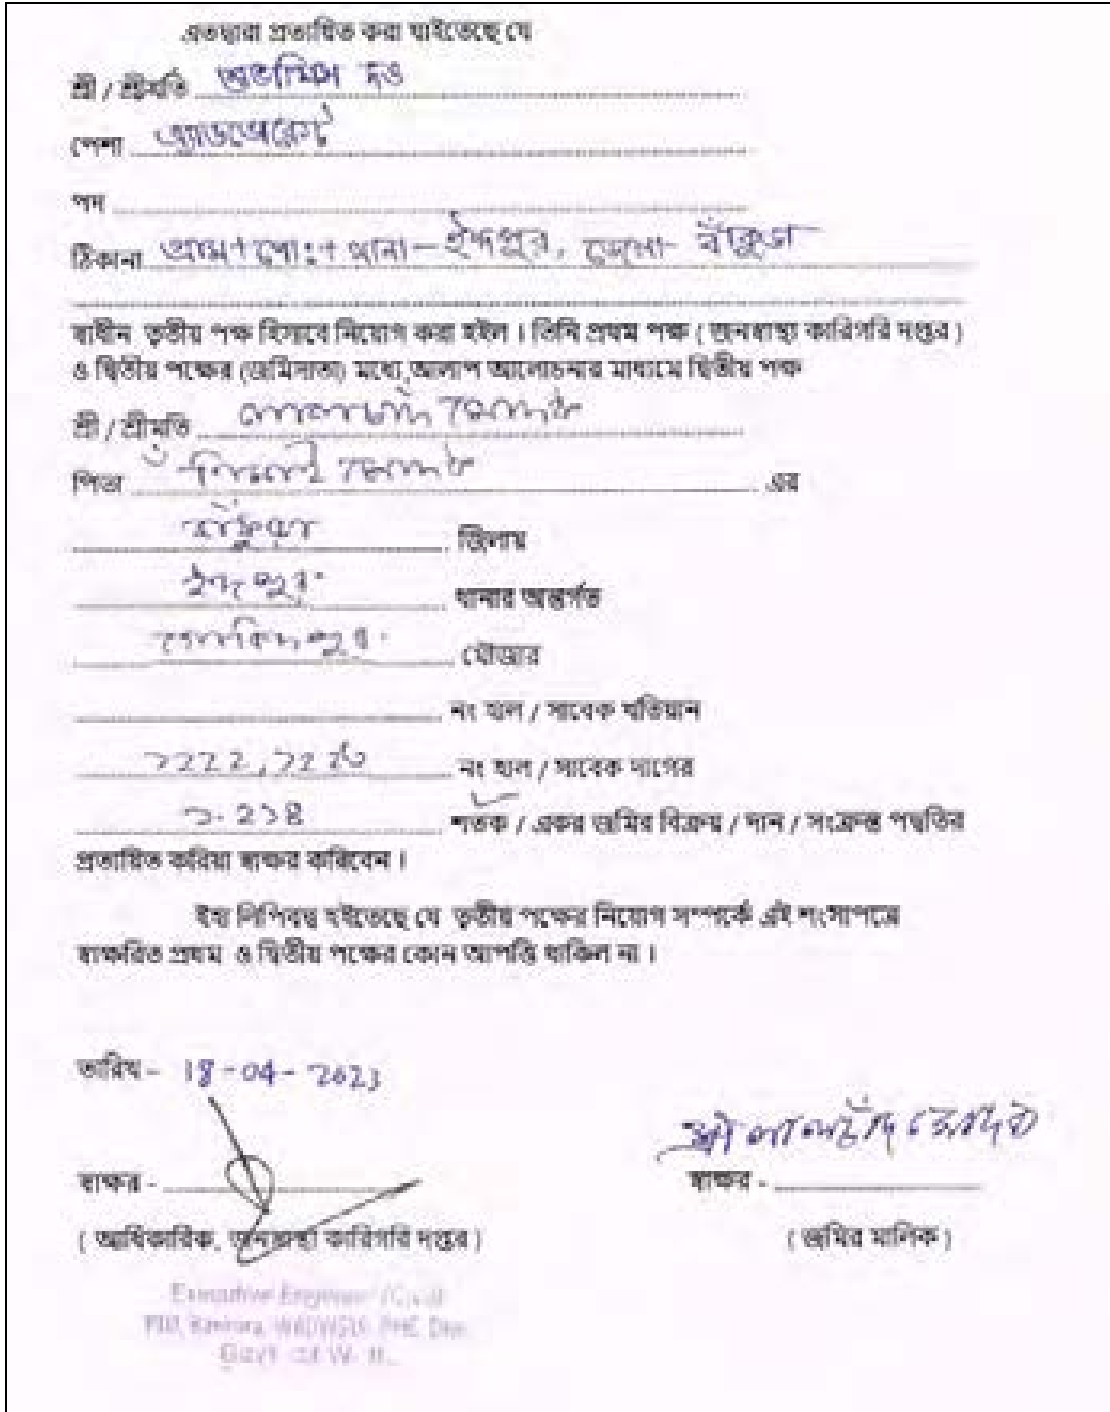 এতদ্বারা প্রত্যয়িত করা যাইতেছে যে
শ্রী / শ্রীমতি দত্ত
পেশা এ্যাডভোকেট
পদ
ঠিকানা গ্রাম+পোঃ+থানা-ইন্দপুর, জেলা- বাঁকুড়া
স্বাধীন তৃতীয় পক্ষ হিসাবে নিয়োগ করা হইল । তিনি প্রথম পক্ষ ( জনস্বাস্থ্য কারিগরি দপ্তর )
ও দ্বিতীয় পক্ষের (জমিদাতা) মধ্যে আলাপ আলোচনার মাধ্যমে দ্বিতীয় পক্ষ
শ্রী / শ্রীমতি
পিতা নিমাই এর
বাঁকুড়া জিলায়
ইন্দপুর থানার অন্তর্গত
গোবিন্দপুর মৌজার
নং হাল / সাবেক খতিয়ান
নং হাল / সাবেক দাগের
শতক / একর জমির বিক্রয় / দান / সংক্রান্ত পদ্ধতির
প্রত্যয়িত করিয়া স্বাক্ষর করিবেন ।
ইহা লিপিবদ্ধ হইতেছে যে তৃতীয় পক্ষের নিয়োগ সম্পর্কে এই শংসাপত্রে
স্বাক্ষরিত প্রথম ও দ্বিতীয় পক্ষের কোন আপত্তি থাকিল না ।
তারিখ - 18-04-2023
স্বাক্ষর -
স্বাক্ষর -
( আধিকারিক, জনস্বাস্থ্য কারিগরি দপ্তর )
( জমির মালিক )
Executive Engineer (Civil)
PIU, Bankura, WBDWSIP, PHE Dte.
Govt. of W. B.